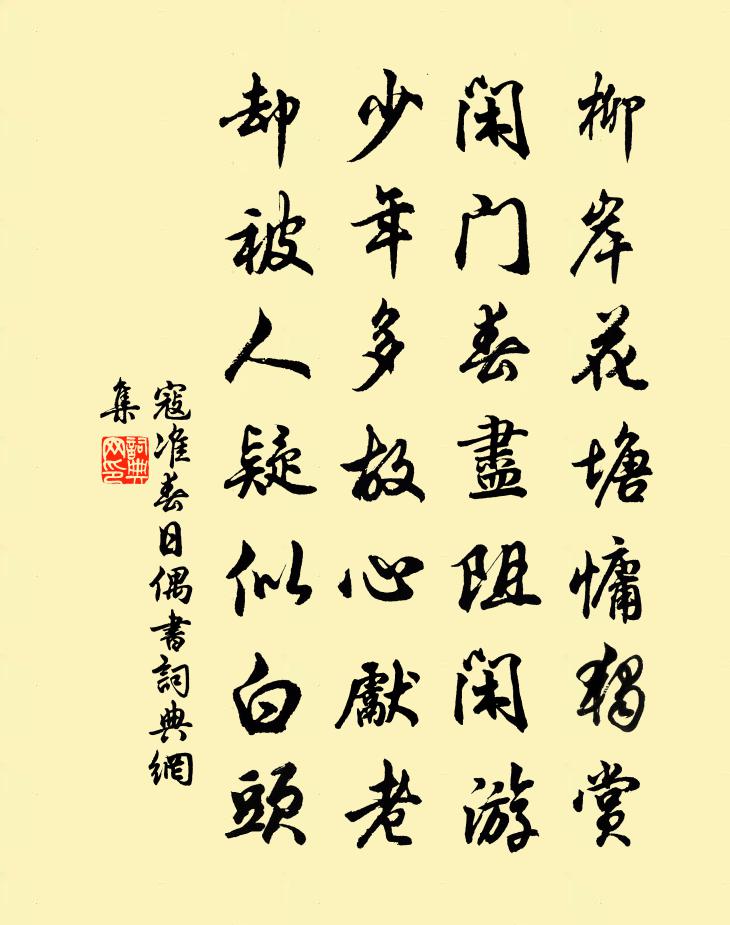 柳岸花塘慵獨賞
閑門春盡阻閑游
少年多故心獻老
却被人疑似白頭
寇准春日偶書詞典網
集
詞典
网印